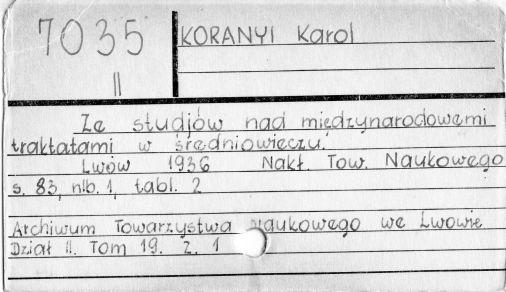 7035
II
KORANYI Karol
Ze studjów nad międzynarodowemi
traktatami w średniowieczu.
Lwów 1936 Nakł. Tow. Naukowego
s. 83, nlb. 1, tabl. 2
Archiwum Towarzystwa Naukowego we Lwowie
Dział II. Tom 19. z. 1